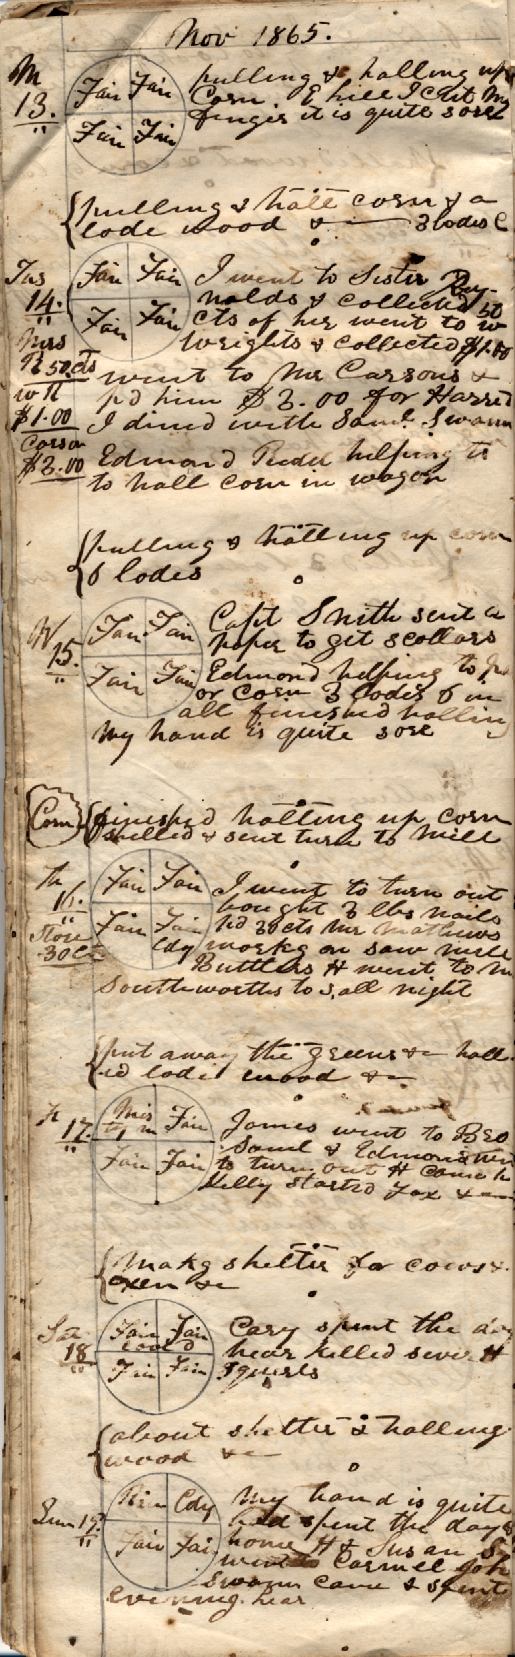 Nov 1865.
M
13.
Fair Fair
Fair Fair
pulling & halling up
Corn. E hill I cut my
finger it is quite sore
pulling & hall corn & a
lode wood & 3 lodes C
Tus
14.
Fair Fair
Fair Fair
I went to Sister Rey-
nolds & collected 50
cts of her went to w
Wrights & collected $1.00
Mrs
R 50 cts
W R
$1.00
Carson
$3.00
went to Mr Carsons &
p'd him $3.00 for Harri
I dined with Saml. Swann
Edmond Rudd helping to
to hall corn in wagon
pulling & halling up corn
6 lodes
W
15.
Fair Fair
Fair Fair
Capt Smith sent a
paper to get scollars
Edmond helping to
or corn 3 lodes 6 in
all finished halling
my hand is quite sore
Corn
finished halling up corn
shelled & sent turn to mill
Th
16.
Store
30 cts
Fair Fair
Fair Fair
Cdy
I went to turn out
bought 3 lbs nails
p'd 30 cts Mr Mathews
workg on saw mill
Buttlers H went to M
Southworths to s, all night
put away the greens & hall
ed lode wood &
F
17.
Mis
ty m Fair
Fair Fair
James went to Bro
Saml & Edmond went
to turn out H came h
Kelly started Fax &
makg shelter for cows &
oxen &
Sat
18
Fair Fair
cool'd
Fair Fair
Cary spent the day
hear killed sever H
squerls
about shelter & halling
wood &
Sun 19.
Rain Cdy
Fair Fair
My hand is quite
bad spent the day
home H & Susan
went to Carmel Joh
Swann came & spent
evening hear